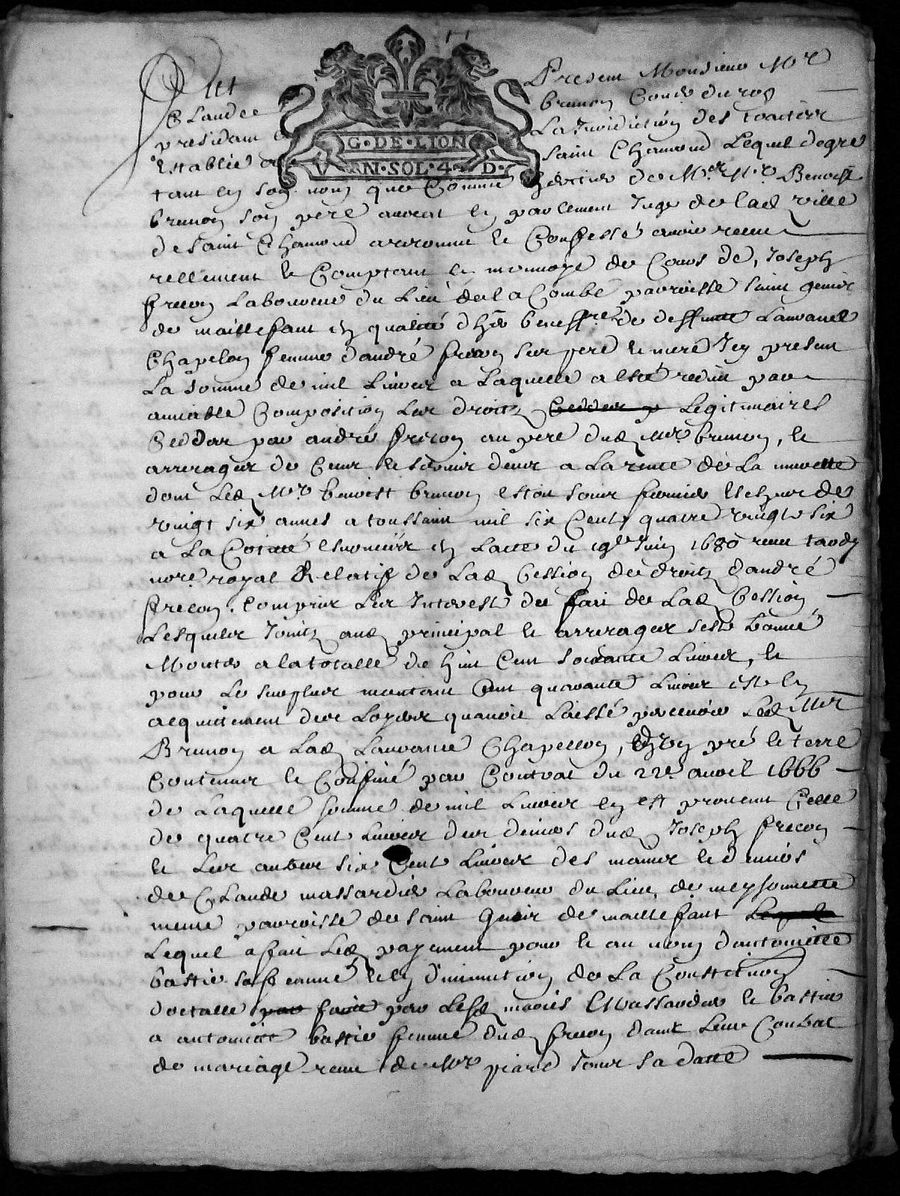 Fut Present Monsieur Mre
Claude brunon Conser du roy
presidant en La Juridiction des traittes
Establie a saint Chamond Lequel de gre
tant en son nom que Comme heritier de Mre Mre Benoist
brunon son pere avocat en parlement Juge de lad ville
de saint Chamond a reconnu et Confessé avoir receu
reellement et Comptant en monnoye de Cours de, Joseph
frecon Laboureur du Lieu de la Combe parroisse saint genier
de maillefaut en qualité d'her beneffre de deffunte Laurance
Chapelon femme d'andré frecon ses pere et mere Icy present
La somme de mil Livres a Laquelle a esté reduit par
amiable Composition Les droitz Legitimaires
Ceddés par andré frecon au pere dud Mre brunon, et
arrerages de Ceux et de
dont Led Mre benoist brunon estoit
vingt six annes a toussaint mil six Cent quatre vingts six
a La en Lacte du 19e Juin 1680 receu tardy
nore royal Relatif de Lad Cession de droitz d'andré
frecon. Compris Les Interest du fait de Lad Cession
Lesquels Jointz aud principal et arrerages
Montes a la totalle de huit Cent soixante Livres, et
pour Le surplus montant Cent quarante Livres est en
acquittement des Loyers qu'avoit Laissé Led Mre
Brunon a Lad Laurance Chapellon, pré et terre
Contenus et Confiné par Contrat du 22e avril 1666
de Laquelle somme de mil Livres en est provenu Celle
de quatre Cent Livres des deniers dud Joseph frecon
et Les autres six Cent Livres des mains et deniers
de Claude massardier Laboureur du Lieu de meysonnette
meme parroisse de saint genier de maillefaut
Lequel a fait Led payement pour et au nom d'antoinette
bastie sa femme et en diminution de La Constitution
dotalle faitte par Lesd mariés Massardier et bastie
a antoinette bastie femme dud frecon dans Leur Contrat
de mariage receu de Mre piard sous sa datte
G·DE·LION
VN·SOL·4·D·